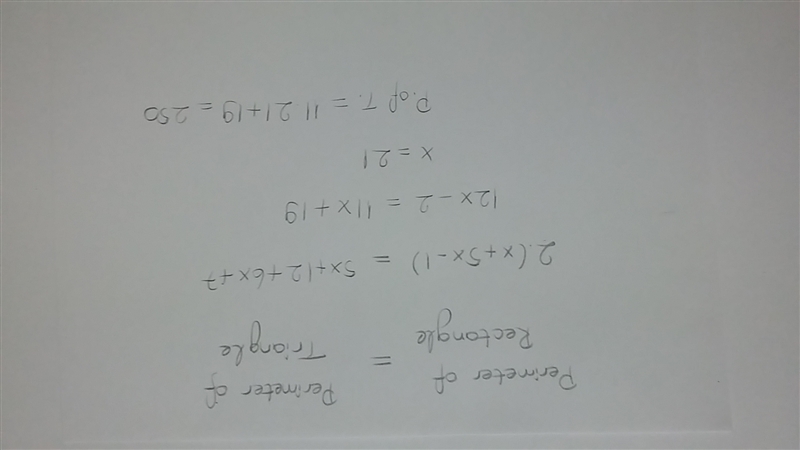 Perimeter of Rectangle = Perimeter of Triangle
2.(x+5x-1) = 5x+12+6x+7
12x-2 = 11x+19
x=21
P.of T. = 11.21+19=250